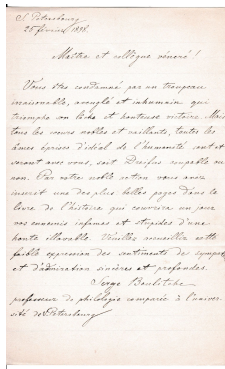 St Petersbourg
25 février 1898.
Maître et collègue vénéré!
Vous êtes condamné par un troupeau
irraisonable, aveuglé et inhumain qui
triomphe son lâche et honteuse victoire. Mais
tous les cœurs nobles et vaillants, toutes les
âmes éprises d'idéal de l'humanité sont et
seront avec vous, soit Dreifus coupable ou
non. Par votre noble action vous avez
inscrit une des plus belles pages dans le
livre de l'histoire qui couvrira un jour
vos ennemis infames et stupides d'une
honte illavable. Veuillez accueillir cette
faible expression des sentiments de sympat
et d'admiration sincères et profondes.
Serge Boulitche
professeur de philologie comparée à l'univer
sité de St Petersbourg